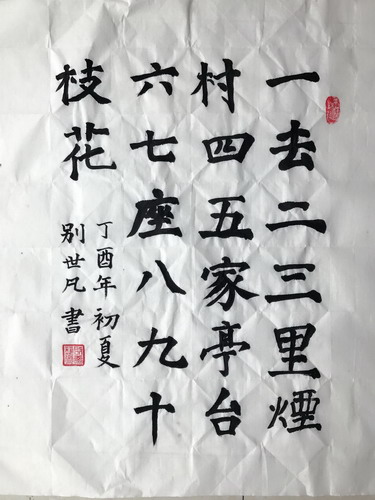 一去二三里煙
村四五家亭台
六七座八九十
枝花
丁酉年初夏
别世凡書